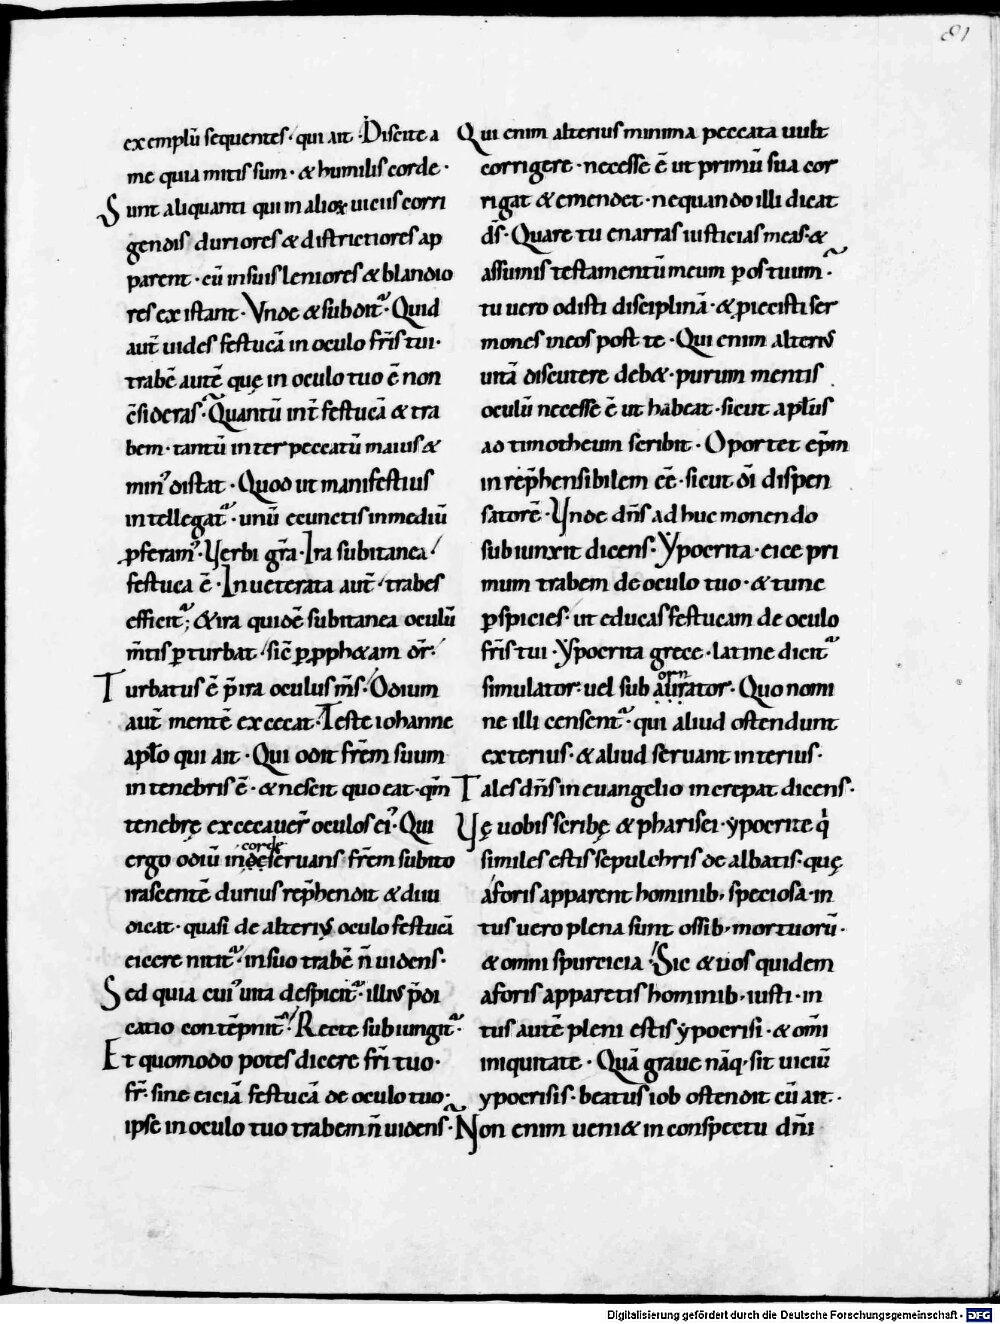 81
exemplū sequentes· qui ait· Discite a
me quia mitis sum· & humilis corde·
Sunt aliquanti qui in alioꝝ uiciis corri
gendis duriores & districtiores ap
parent· cū in suis leniores & blandio
res existant· Vnde & subdit᷑· Quid
aut̄ uides festucā in oculo fr̄is tui·
trabē autē quę in oculo tuo ē non
c̄sideras· Quantū int̄ festucā & tra
bem· tantū inter peccatū maius &
min᾽ distat· Quod ut manifestius
intellegat᷑· unū e cunctis in mediū
ꝓferam᾽· Verbi gr̄a· Ira subitanea
festuca ē· Inueterata aut̄ trabes
efficit᷑; & ira quidē subitanea oculū
m̄tis ꝑturbat· sic̄ ꝑ ꝓph&am dr̄·
Turbatus ē p̄ ira oculus m̄s· Odium
aut̄ mentē excecat· Teste iohanne
apl̄o qui ait· Qui odit fr̄em suum
in tenebris ē· & nescit quo eat· qm̄
tenebrę excecauer̄ oculos ei᾽· Qui
corde
ergo odiū in seruans fr̄em subito
irascentē durius rep̄hendit & diiu
dicat· quasi de alterius oculo festucā
eicere nitit᷑· in suo trabē n̄ uidens·
Sed quia cui᾽ uita despicit᷑· illi᾽ p̄di
catio contēpnit᷑· Recte subiungit᷑·
Et quomodo potes dicere fr̄i tuo·
fr̄· sine eiciā festucā de oculo tuo·
ipse in oculo tuo trabem n̄ uidens·
Qui enim alterius minima peccata uult
corrigere· necesse ē ut primū sua cor
rigat & emendet· ne quando illi dicat
ds̄· Quare tu enarras iusticias meas· &
assumis testamentū meum ꝑ os tuum·
tu uero odisti disciplinā· & piecisti ser
mones meos post te· Qui enim alterius
uitā discutere deb&· purum mentis
oculū necesse ē ut habeat· sicut apl̄us
ad timotheum scribit· Oportet ep̄m
inrep̄hensibilem eē· sicut dī dispen
satorē· Vnde dn̄s adhuc monendo
subiunxit dicens· Ypocrita· eice pri
mum trabem de oculo tuo· & tunc
ꝑspicies· ut educas festucam de oculo
fr̄is tui· Ypocrita grece· latine dicit᷑
simulator· uel sub aurator· Quo nomi
ne illi censent᷑· qui aliud ostendunt
exterius· & aliud seruant interius·
Tales dn̄s in euangelio increpat dicens·
Vę uobis scribę & pharisei· ypocrite q̄
similes estis sepulchris dealbatis· quę
a foris apparent hominib· speciosa· in
tus uero plena sunt ossib· mortuorū·
& omni spurcicia· Sic & uos quidem
a foris apparetis hominib· iusti· in
tus autē pleni estis ypocrisi· & om̄i
iniquitate· Quā graue nāq· sit uiciū
ypocrisis· beatus iob ostendit cū ait·
Non enim ueni& in conspectu dn̄i
Digitalisierung gefördert durch die Deutsche Forschungsgemeinschaft - DFG